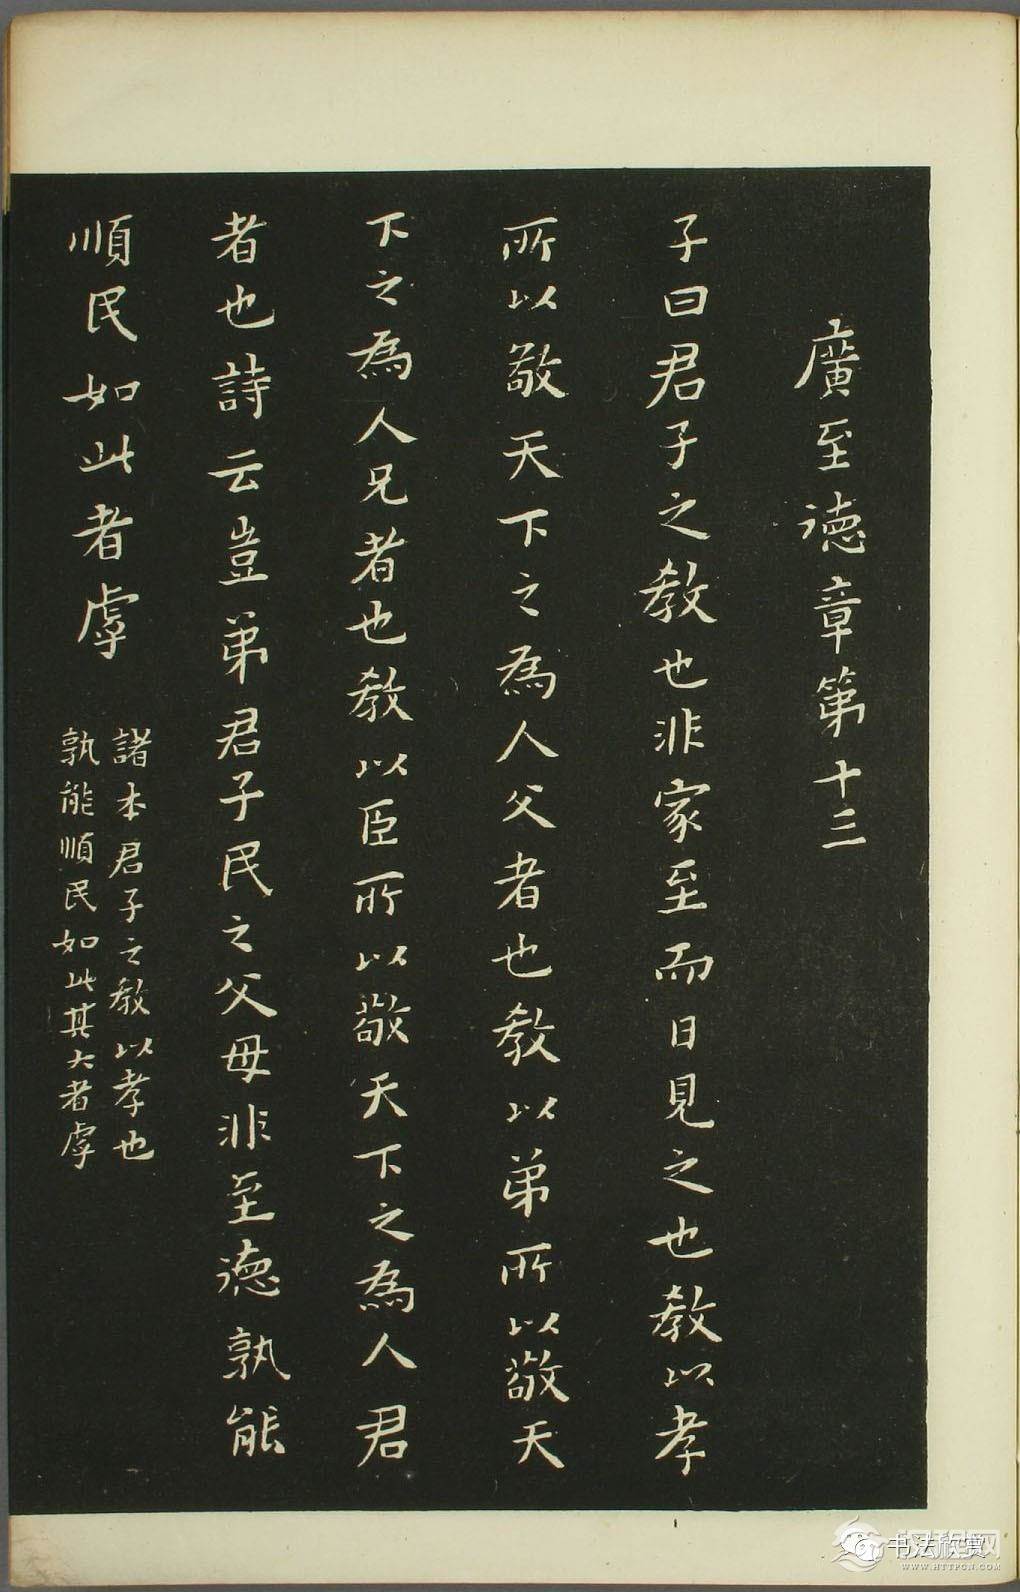 廣至德章第十三
子曰君子之教也非家至而日見之也教以孝
所以敬天下之為人父者也教以弟所以敬天
下之為人兄者也教以臣所以敬天下之為人君
者也詩云豈弟君子民之父母非至德孰能
順民如此者虖
諸本君子之教以孝也
孰能順民如此其大者虖
书法欣赏
WWW.HTTPCN.COM